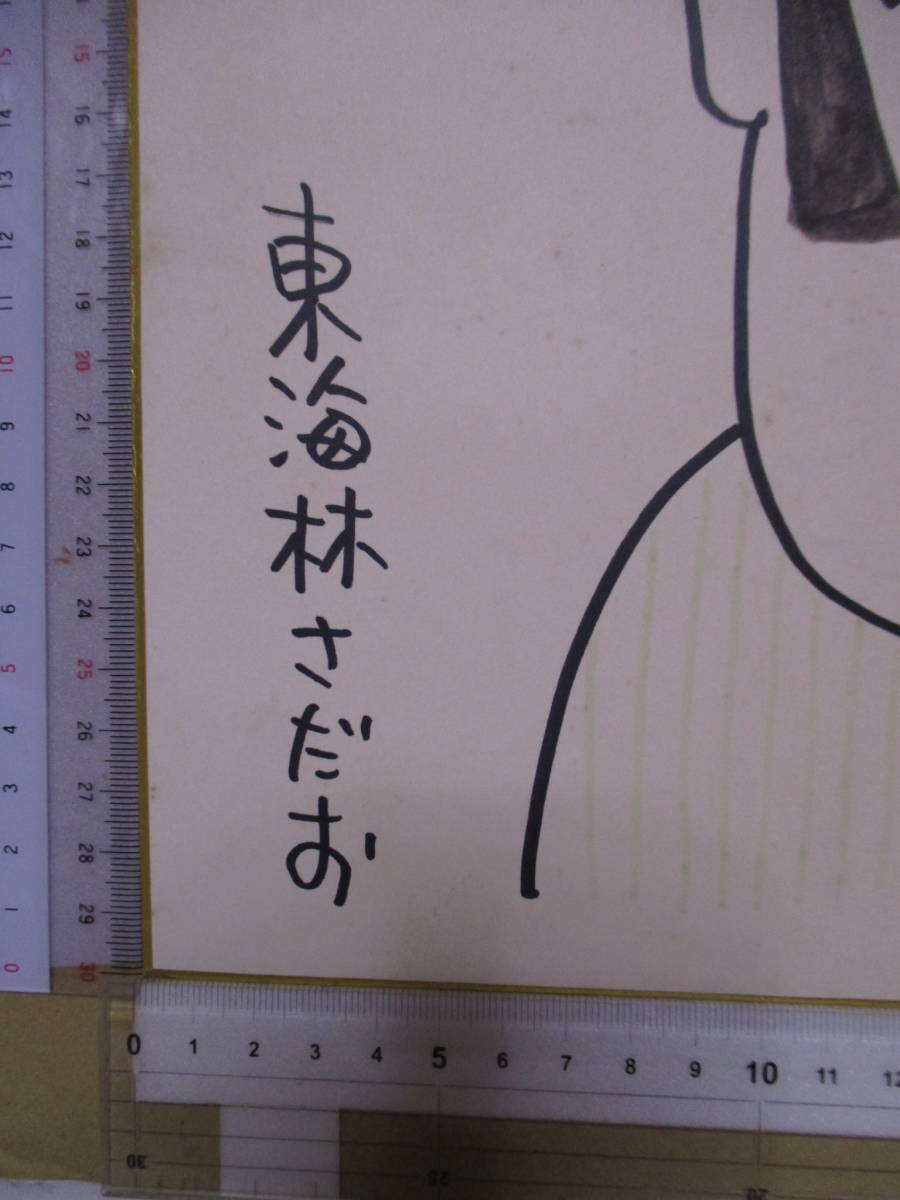 東海林さだお
15
14
13
12
11
10
9
8
7
6
5
4
3
2
1
0
15
16
17
18
19
20
21
22
23
24
25
26
27
28
29
30
0 1 2 3 4 5 6 7 8 9 10 11 12
30 25 20